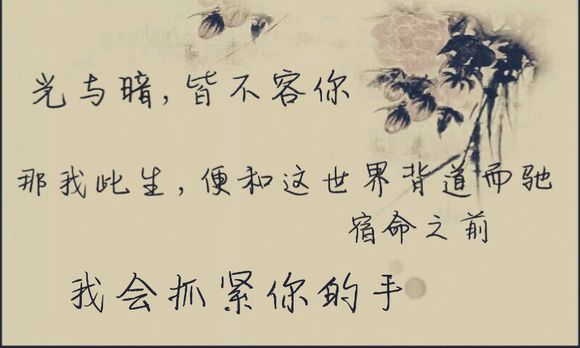 光与暗，皆不容你
那我此生，便和这世界背道而驰
宿命之前
我会抓紧你的手